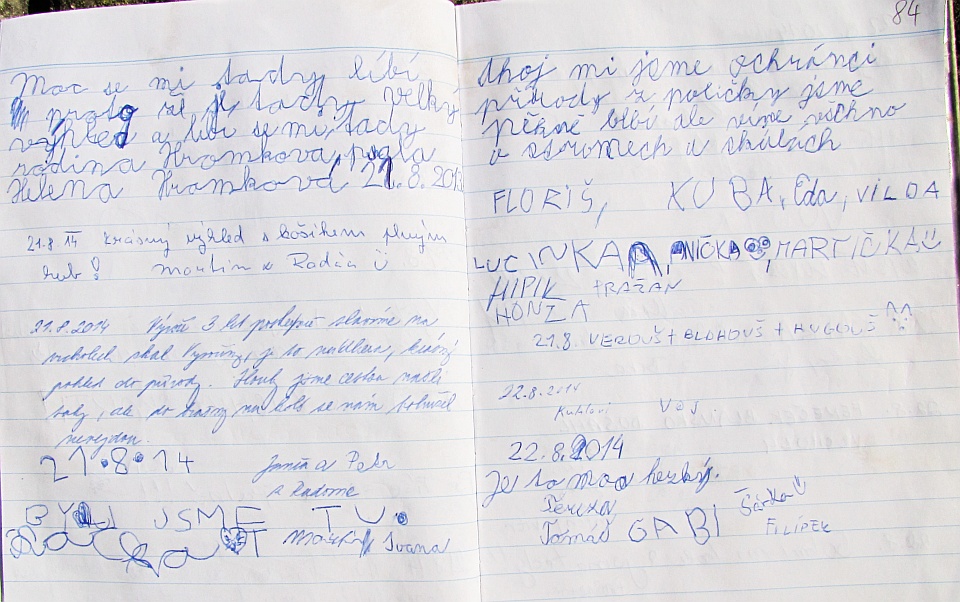 Moc se mi tady líbí
proto že je tady velký
výhled a líbí se mi tady
rodina Hromkova
Helena Hromková 21.8.
21.8.14 krásný výhled s košíkem plným
hub! Martin a Radča
21.8.2014 Výročí 3 let slavíme na
skal je to nádhera, krásný
pohled do přírody. Houby jsme cestou našli
taky, ale do se nám
nevejdou.
21.8.14 Jana a Petr
z Radomě
BYLI JSME TU.
Ivana
Ahoj mi jsme ochránci
přírody z poličky jsme
pěkně blbí ale víme všchno
o stromech a skálách
FLORIŠ, KUBA, Eda, VILDA
LUCINKA, ANIČKA, MARTIČKA
HIPÍK TRAŽAN
HONZA
21.8. VEROUŠ + OLDHOUŠ + HUGOUŠ
22.8.2014
22.8.2014
Je to moc hezký.
Tereza Šárka
Tomáš GABI FILÍPEK
84